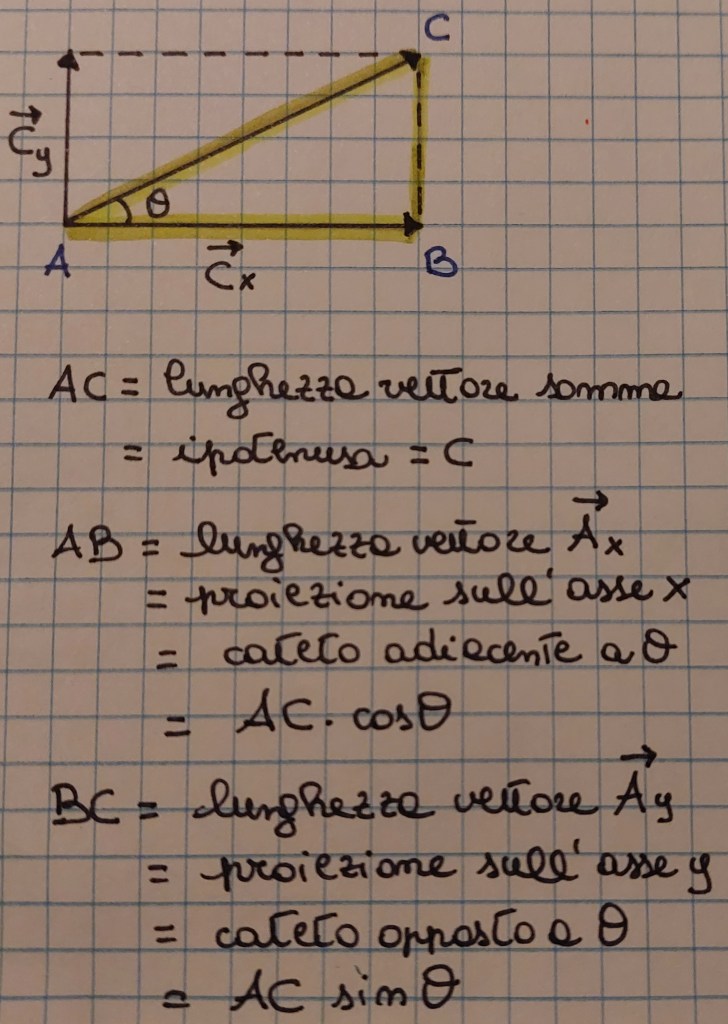 C
C⃗y
θ
A
C⃗x
B
AC = lunghezza vettore somma
= ipotenusa = C
AB = lunghezza vettore A⃗x
= proiezione sull'asse x
= cateto adiacente a θ
= AC · cosθ
BC = lunghezza vettore A⃗y
= proiezione sull'asse y
= cateto opposto a θ
= AC sinθ